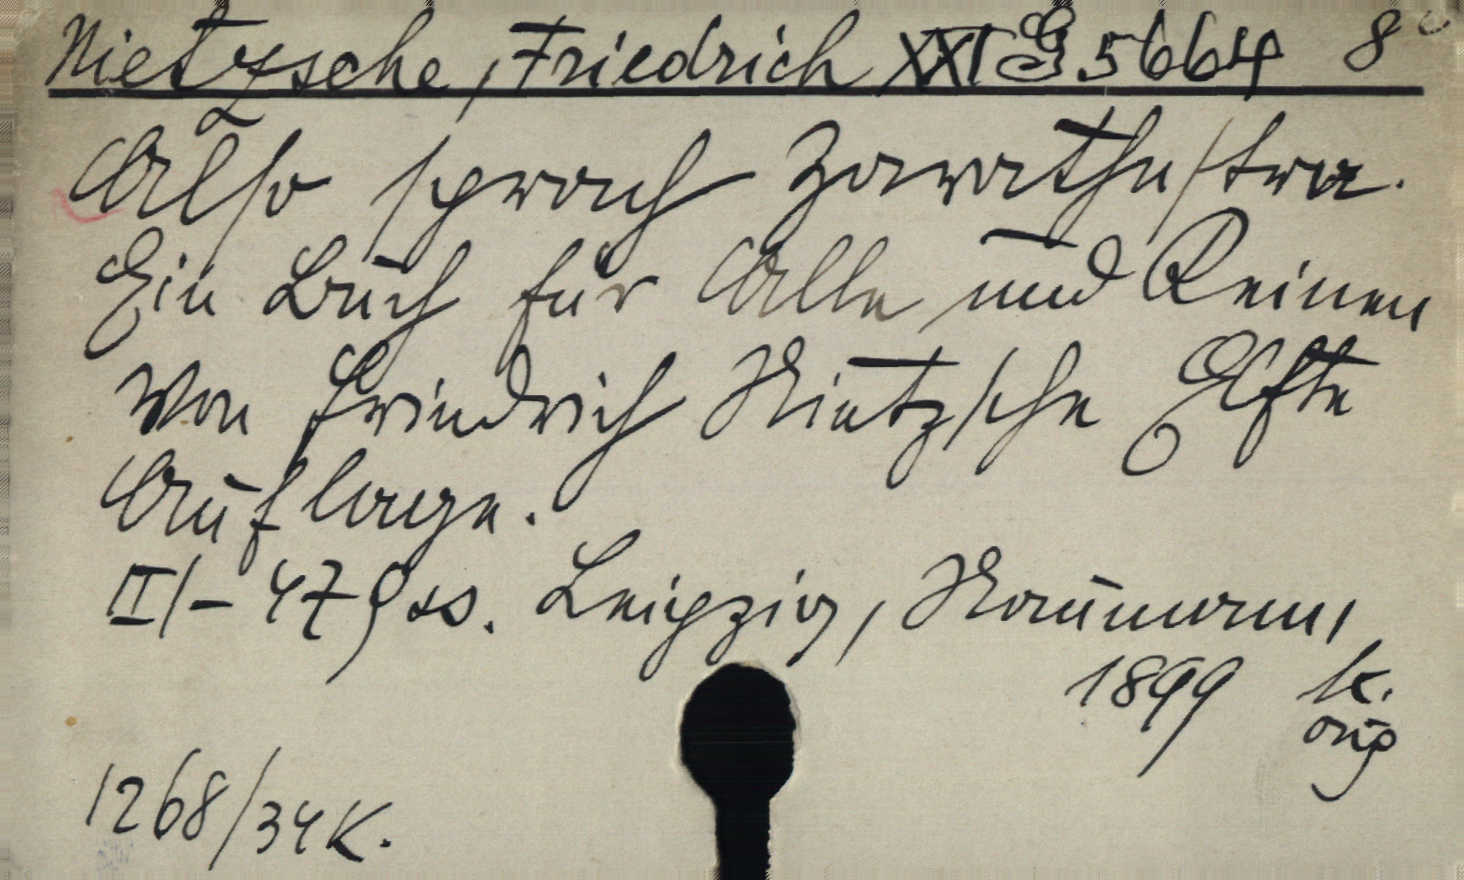 Nietzsche, Friedrich XXI G 5664 8°
Also sprach Zarathustra.
Ein Buch für Alle und Keinen
Von Friedrich Nietzsche Elfte
Auflage.
II/-47 Lss. Leipzig, Naumann,
1899 k.
orig
1268/34K.